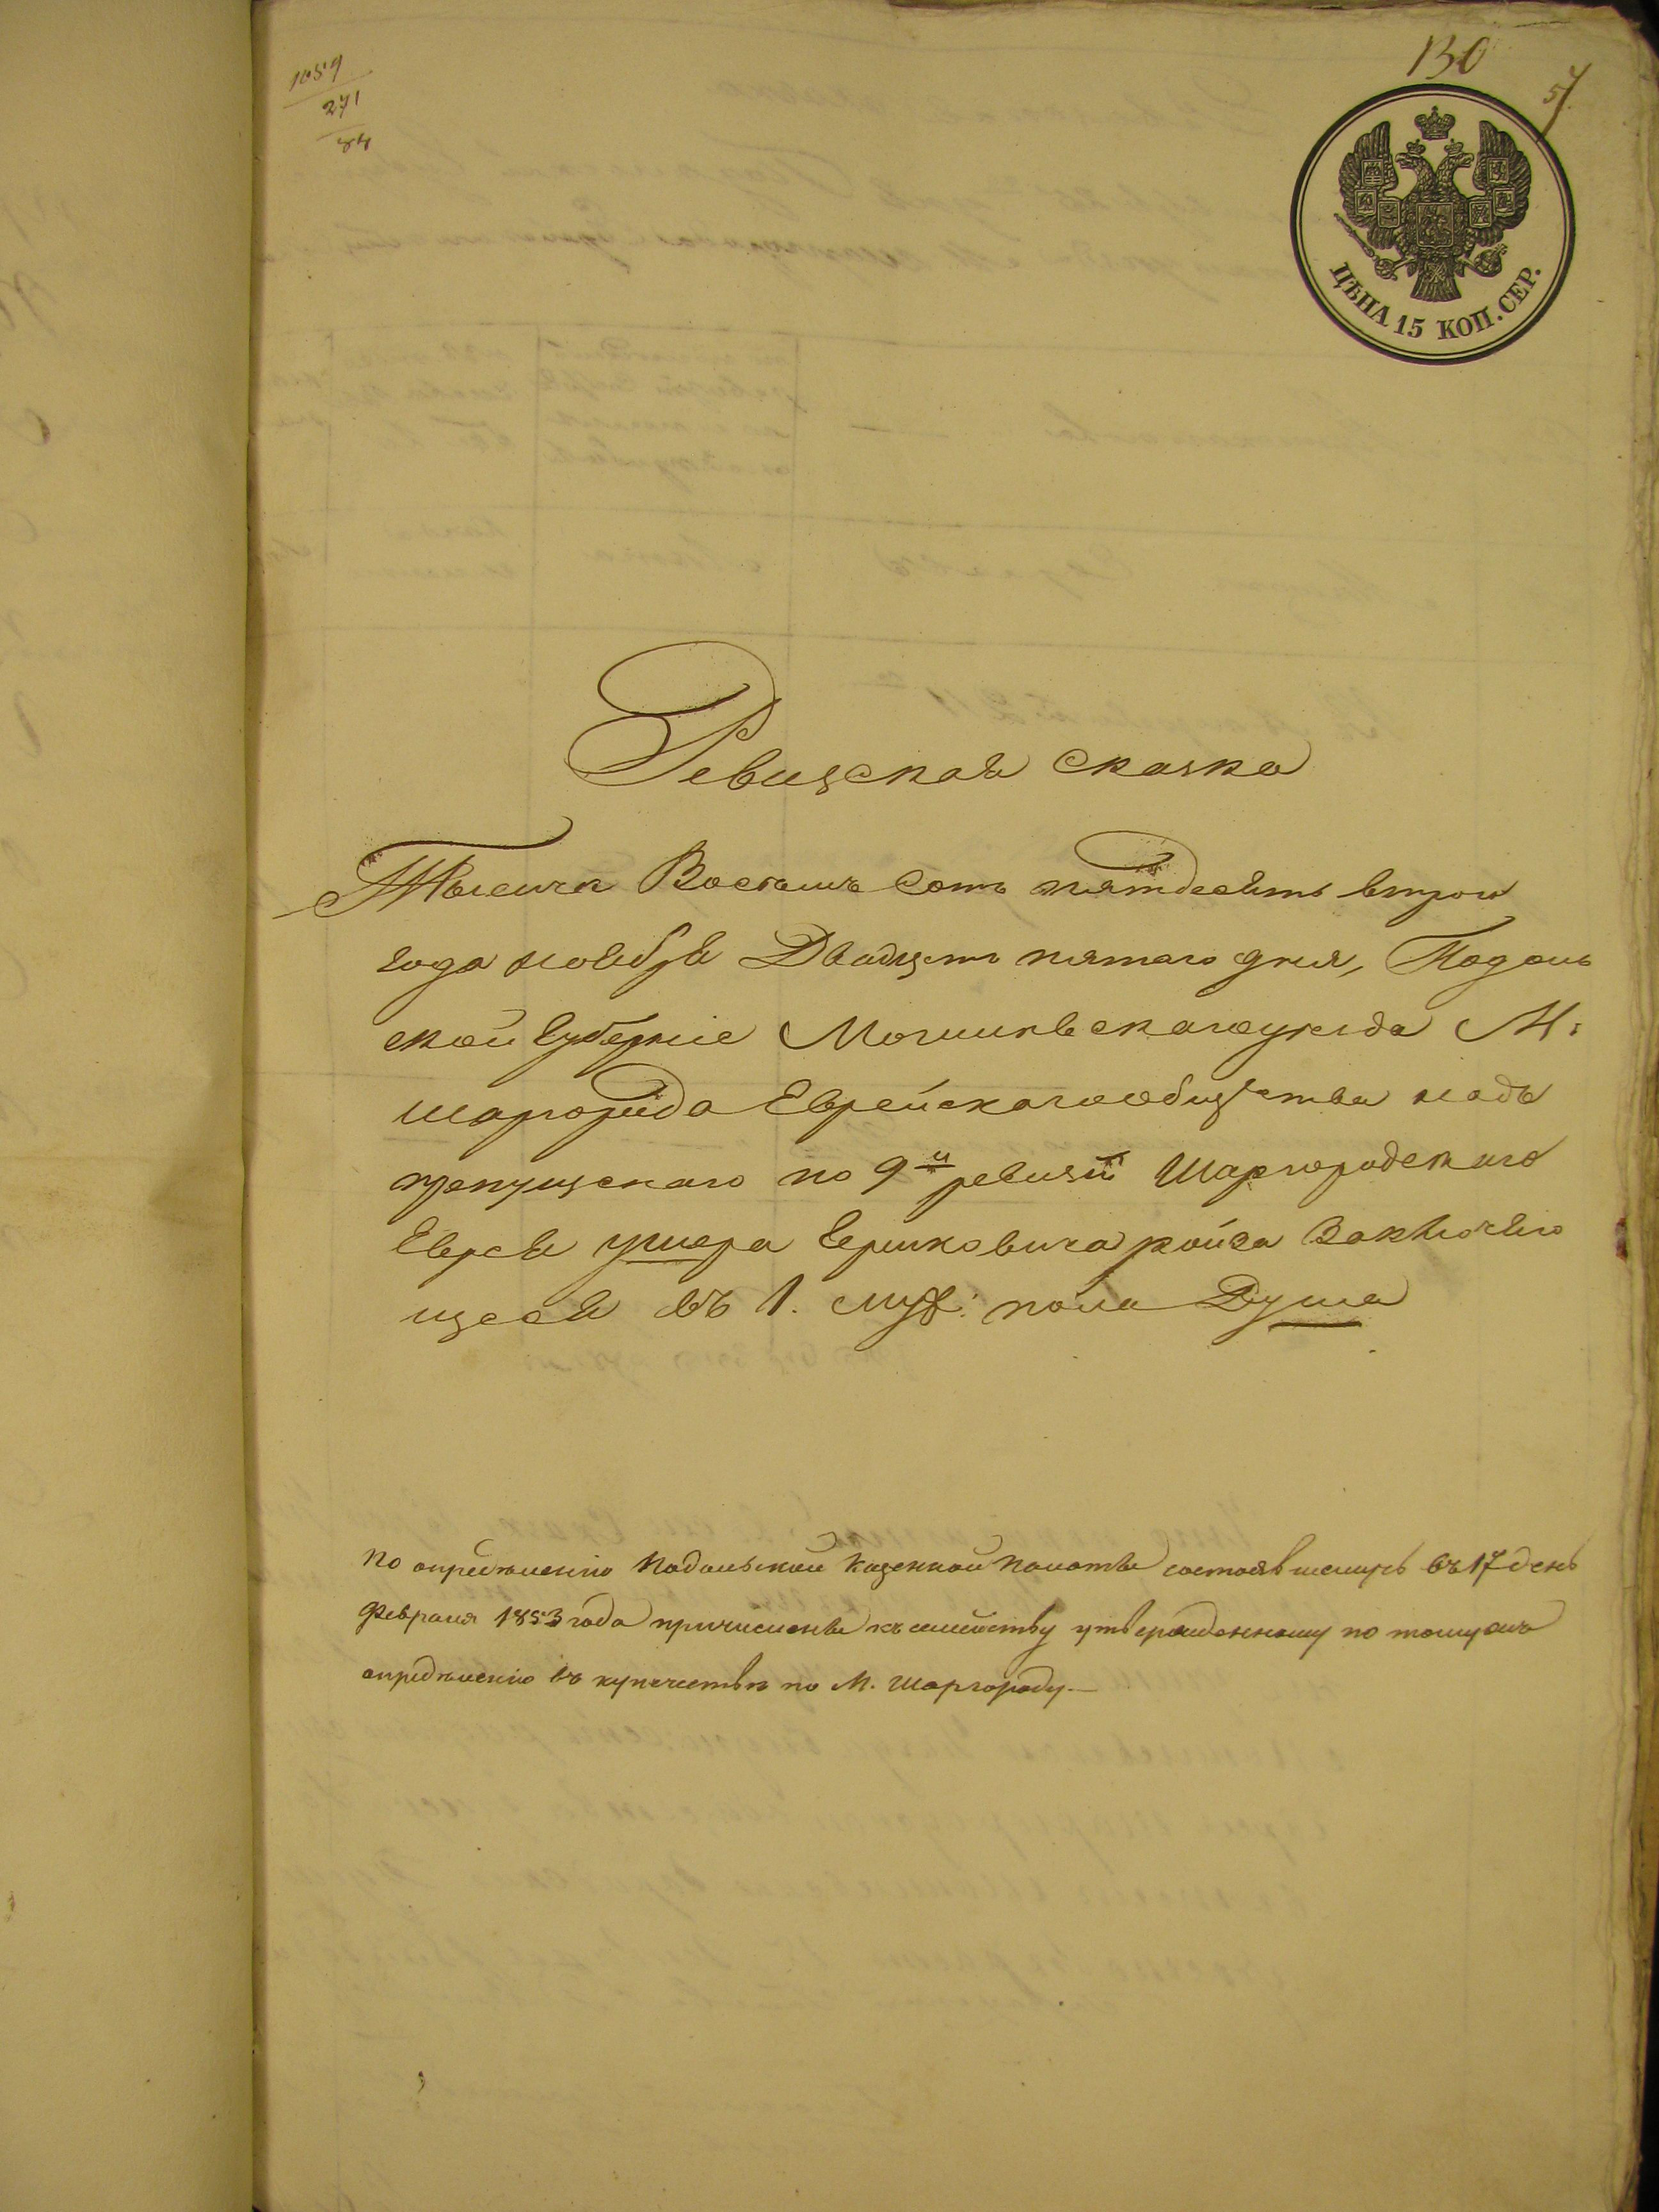 130
57
1059
271
84
ЦѢНА 15 КОП. СЕР.
Ревизская сказка
Тысяча Восемь Сотъ пятдесятъ втрои
года ноября Двадцетъ пятаго дня, Подоль
ской Губерніе Могилевскагоуезда М:
шаргорода Еврейскагообщества надъ
пропущенаго по 9й ревизіи Шаргородскаго
Еврея Ушера Ершковича ройза Заключаю
щеся въ 1. муж: пола Душа
По определенію Подольской Казенной Палаты состоявшемусь въ 17 день
Февраля 1853 года причислены къ семейству утвержденному по томужъ
определенію въ купечествѣ по М. Шаргороду.—